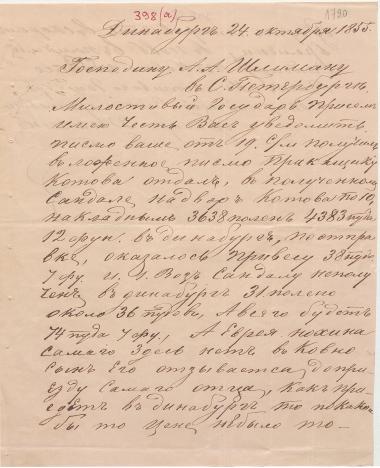 398(а) 1790
Динабургъ 24. октября 1855.
Господину А. А. Шлиману
в С. Петербургъ.
Милостивый Государь Присемъ
имею честь Васъ уведомить
писмо ваше отъ 19. с/м получилъ
вложенное писмо Прикащику
Котова отдалъ, в полученномъ
Сандале надворъ Котова по 10,
накладнымъ 3638 полен 4383 пуда
12 фун. въ динабургъ, поотправ
ке, оказалось привесу 38 пудъ
7 фу. и. 1. Возъ Сандалу неполу
ченъ в динабургъ 31 полено
около 36 пудовъ, Авсего будетъ
74 пуда 7 фу., А Еврея
самаго Здесь нетъ въ Ковно
сынъ Его отзывается допри
езду самаго отца, какъ при
едетъ въ динабургъ то покакой
бы то цене небыло то